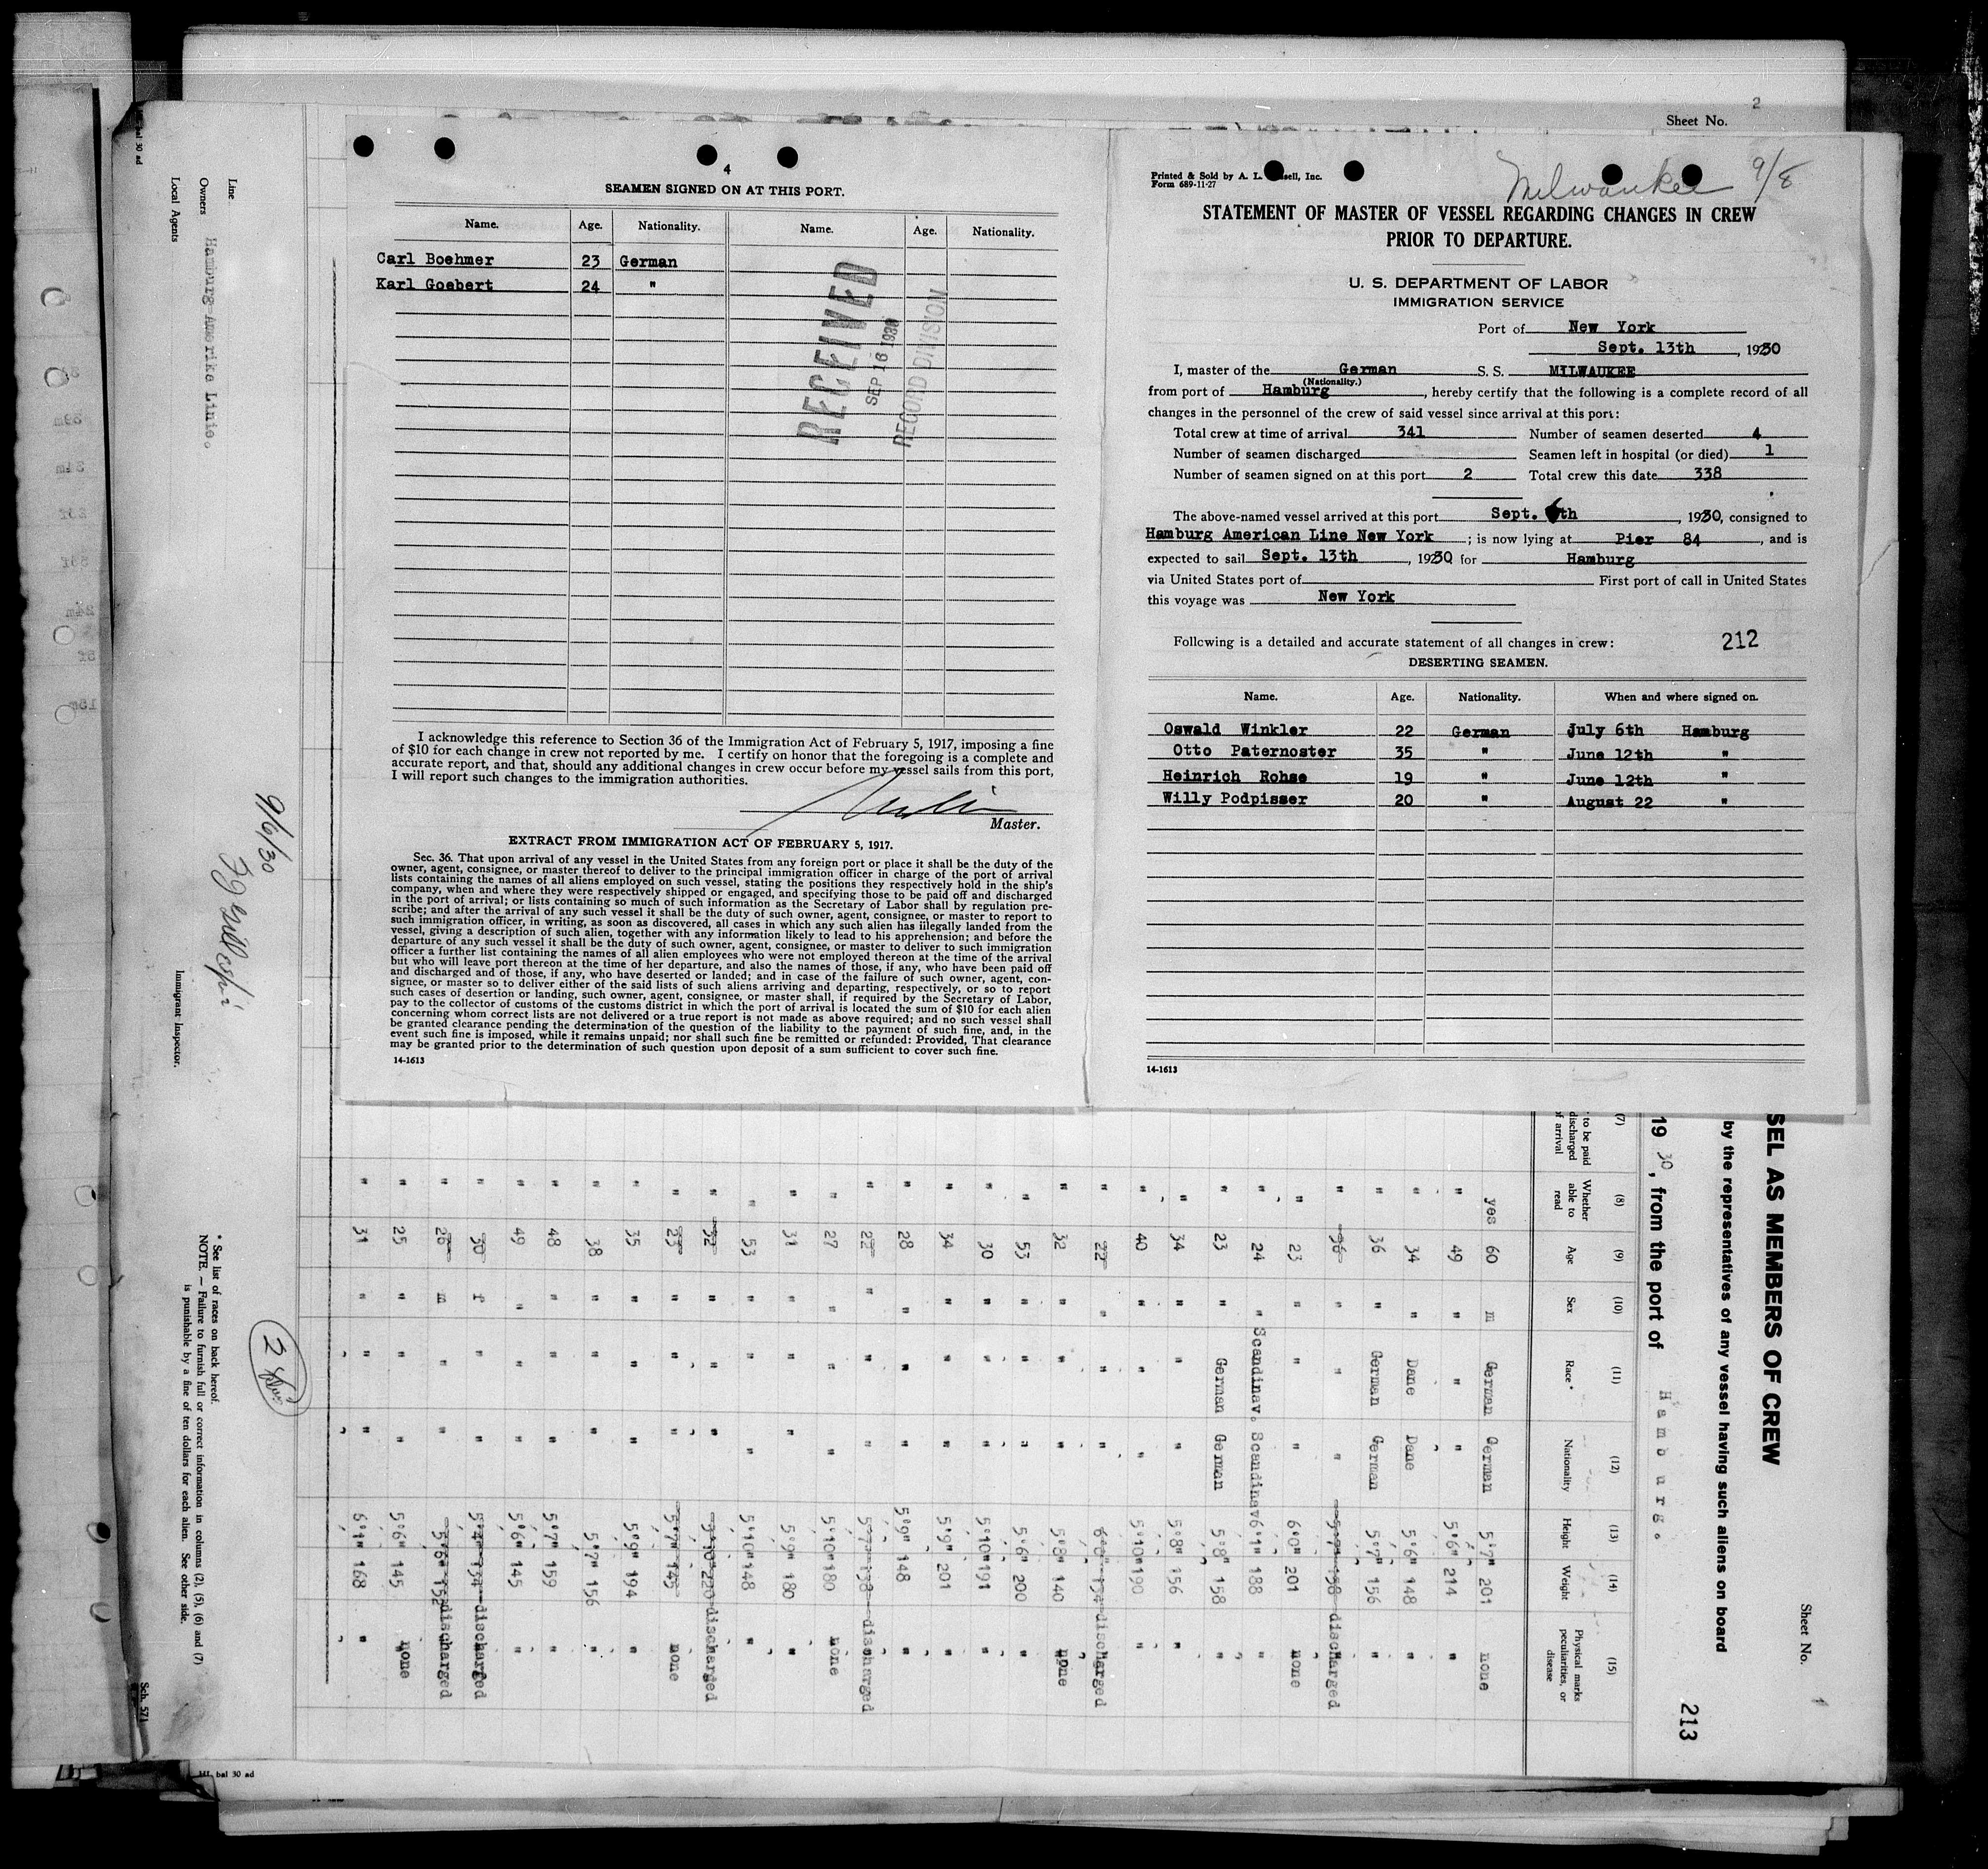 2
Sheet No.
4
SEAMEN SIGNED ON AT THIS PORT.
Name. Age. Nationality. Name. Age. Nationality.
Carl Boehmer 23 German
Karl Goebert 24 "
RECEIVED
SEP 16 1930
RECORD DIVISION
I acknowledge this reference to Section 36 of the Immigration Act of February 5, 1917, imposing a fine
of $10 for each change in crew not reported by me. I certify on honor that the foregoing is a complete and
accurate report, and that, should any additional changes in crew occur before my vessel sails from this port,
I will report such changes to the immigration authorities.
Master.
EXTRACT FROM IMMIGRATION ACT OF FEBRUARY 5, 1917.
Sec. 36. That upon arrival of any vessel in the United States from any foreign port or place it shall be the duty of the
owner, agent, consignee, or master thereof to deliver to the principal immigration officer in charge of the port of arrival
lists containing the names of all aliens employed on such vessel, stating the positions they respectively hold in the ship's
company, when and where they were respectively shipped or engaged, and specifying those to be paid off and discharged
in the port of arrival; or lists containing so much of such information as the Secretary of Labor shall by regulation pre-
scribe; and after the arrival of any such vessel it shall be the duty of such owner, agent, consignee, or master to report to
such immigration officer, in writing, as soon as discovered, all cases in which any such alien has illegally landed from the
vessel, giving a description of such alien, together with any information likely to lead to his apprehension; and before the
departure of any such vessel it shall be the duty of such owner, agent, consignee, or master to deliver to such immigration
officer a further list containing the names of all alien employees who were not employed thereon at the time of the arrival
but who will leave port thereon at the time of her departure, and also the names of those, if any, who have been paid off
and discharged and of those, if any, who have deserted or landed; and in case of the failure of such owner, agent, con-
signee, or master so to deliver either of the said lists of such aliens arriving and departing, respectively, or so to report
such cases of desertion or landing, such owner, agent, consignee, or master shall, if required by the Secretary of Labor,
pay to the collector of customs of the customs district in which the port of arrival is located the sum of $10 for each alien
concerning whom correct lists are not delivered or a true report is not made as above required; and no such vessel shall
be granted clearance pending the determination of the question of the liability to the payment of such fine, and, in the
event such fine is imposed, while it remains unpaid; nor shall such fine be remitted or refunded: Provided, That clearance
may be granted prior to the determination of such question upon deposit of a sum sufficient to cover such fine.
14-1613
Printed & Sold by A. L. sell, Inc.
Form 689-11-27
Milwaukee 9/8
STATEMENT OF MASTER OF VESSEL REGARDING CHANGES IN CREW
PRIOR TO DEPARTURE.
U. S. DEPARTMENT OF LABOR
IMMIGRATION SERVICE
Port of New York
Sept. 13th, 1930
I, master of the German S. S. MILWAUKEE
(Nationality.)
from port of Hamburg, hereby certify that the following is a complete record of all
changes in the personnel of the crew of said vessel since arrival at this port:
Total crew at time of arrival 341 Number of seamen deserted 4
Number of seamen discharged Seamen left in hospital (or died) 1
Number of seamen signed on at this port 2 Total crew this date 338
The above-named vessel arrived at this port Sept. 6th, 1930, consigned to
Hamburg American Line New York; is now lying at Pier 84, and is
expected to sail Sept. 13th, 1930 for Hamburg
via United States port of First port of call in United States
this voyage was New York
Following is a detailed and accurate statement of all changes in crew: 212
DESERTING SEAMEN.
Name. Age. Nationality. When and where signed on.
Oswald Winkler 22 German July 6th Hamburg
Otto Paternoster 35 " June 12th "
Heinrich Rohse 19 " June 12th "
Willy Podpisser 20 " August 22 "
14-1613
SEL AS MEMBERS OF CREW
Sheet No. 1
by the representatives of any vessel having such aliens on board
213
19 30, from the port of Hamburg.
(7) (8) (9) (10) (11) (12) (13) (14) (15)
to be paid discharged of arrival
Whether able to read
Age
Sex
Race *
Nationality
Height
Weight
Physical marks peculiarities, or disease
yes 60 m German German 5'7" 201 none
" 49 " " " 5'6" 214 "
" 34 " Dane Dane 5'6" 148 "
" 36 " German German 5'7" 156 "
" 36 " " " 5'7" 158 discharged
" 23 " " " 6'0" 201 none
" 24 " Scandinav. Scandinav 6'1" 188 "
" 23 " German German 5'8" 158 "
" 34 " " " 5'8" 156 "
" 40 " " " 5'10" 190 "
" 22 " " " 6'0" 134 discharged
" 32 " " " 5'8" 140 none
" 53 " " " 5'6" 200 "
" 30 " " " 5'10" 191 "
" 34 " " " 5'9" 201 "
" 28 " " " 5'9" 148 "
" 22 " " " 5'7" 138 discharged
" 27 " " " 5'10" 180 none
" 31 " " " 5'9" 180 "
" 53 " " " 5'10" 148 "
" 32 " " " 5'10" 220 discharged
" 23 " " " 5'7" 145 none
" 35 " " " 5'9" 194 "
" 38 " " " 5'7" 156 "
" 48 " " " 5'7" 159 "
" 49 " " " 5'6" 145 "
" 30 f " " 5'4" 134 discharged
" 26 m " " 5'6" 152 discharged
" 25 " " " 5'6" 145 none
" 31 " " " 6'1" 168 "
Line
Owners Hamburg-Amerika Linie.
Local Agents
9/6/30
Immigrant Inspector.
* See list of races on back hereof.
NOTE. — Failure to furnish full or correct information in columns (2), (5), (6) and (7)
is punishable by a fine of ten dollars for each alien. See other side.
Sch. 571
bal 30 ad
bal 30 ad